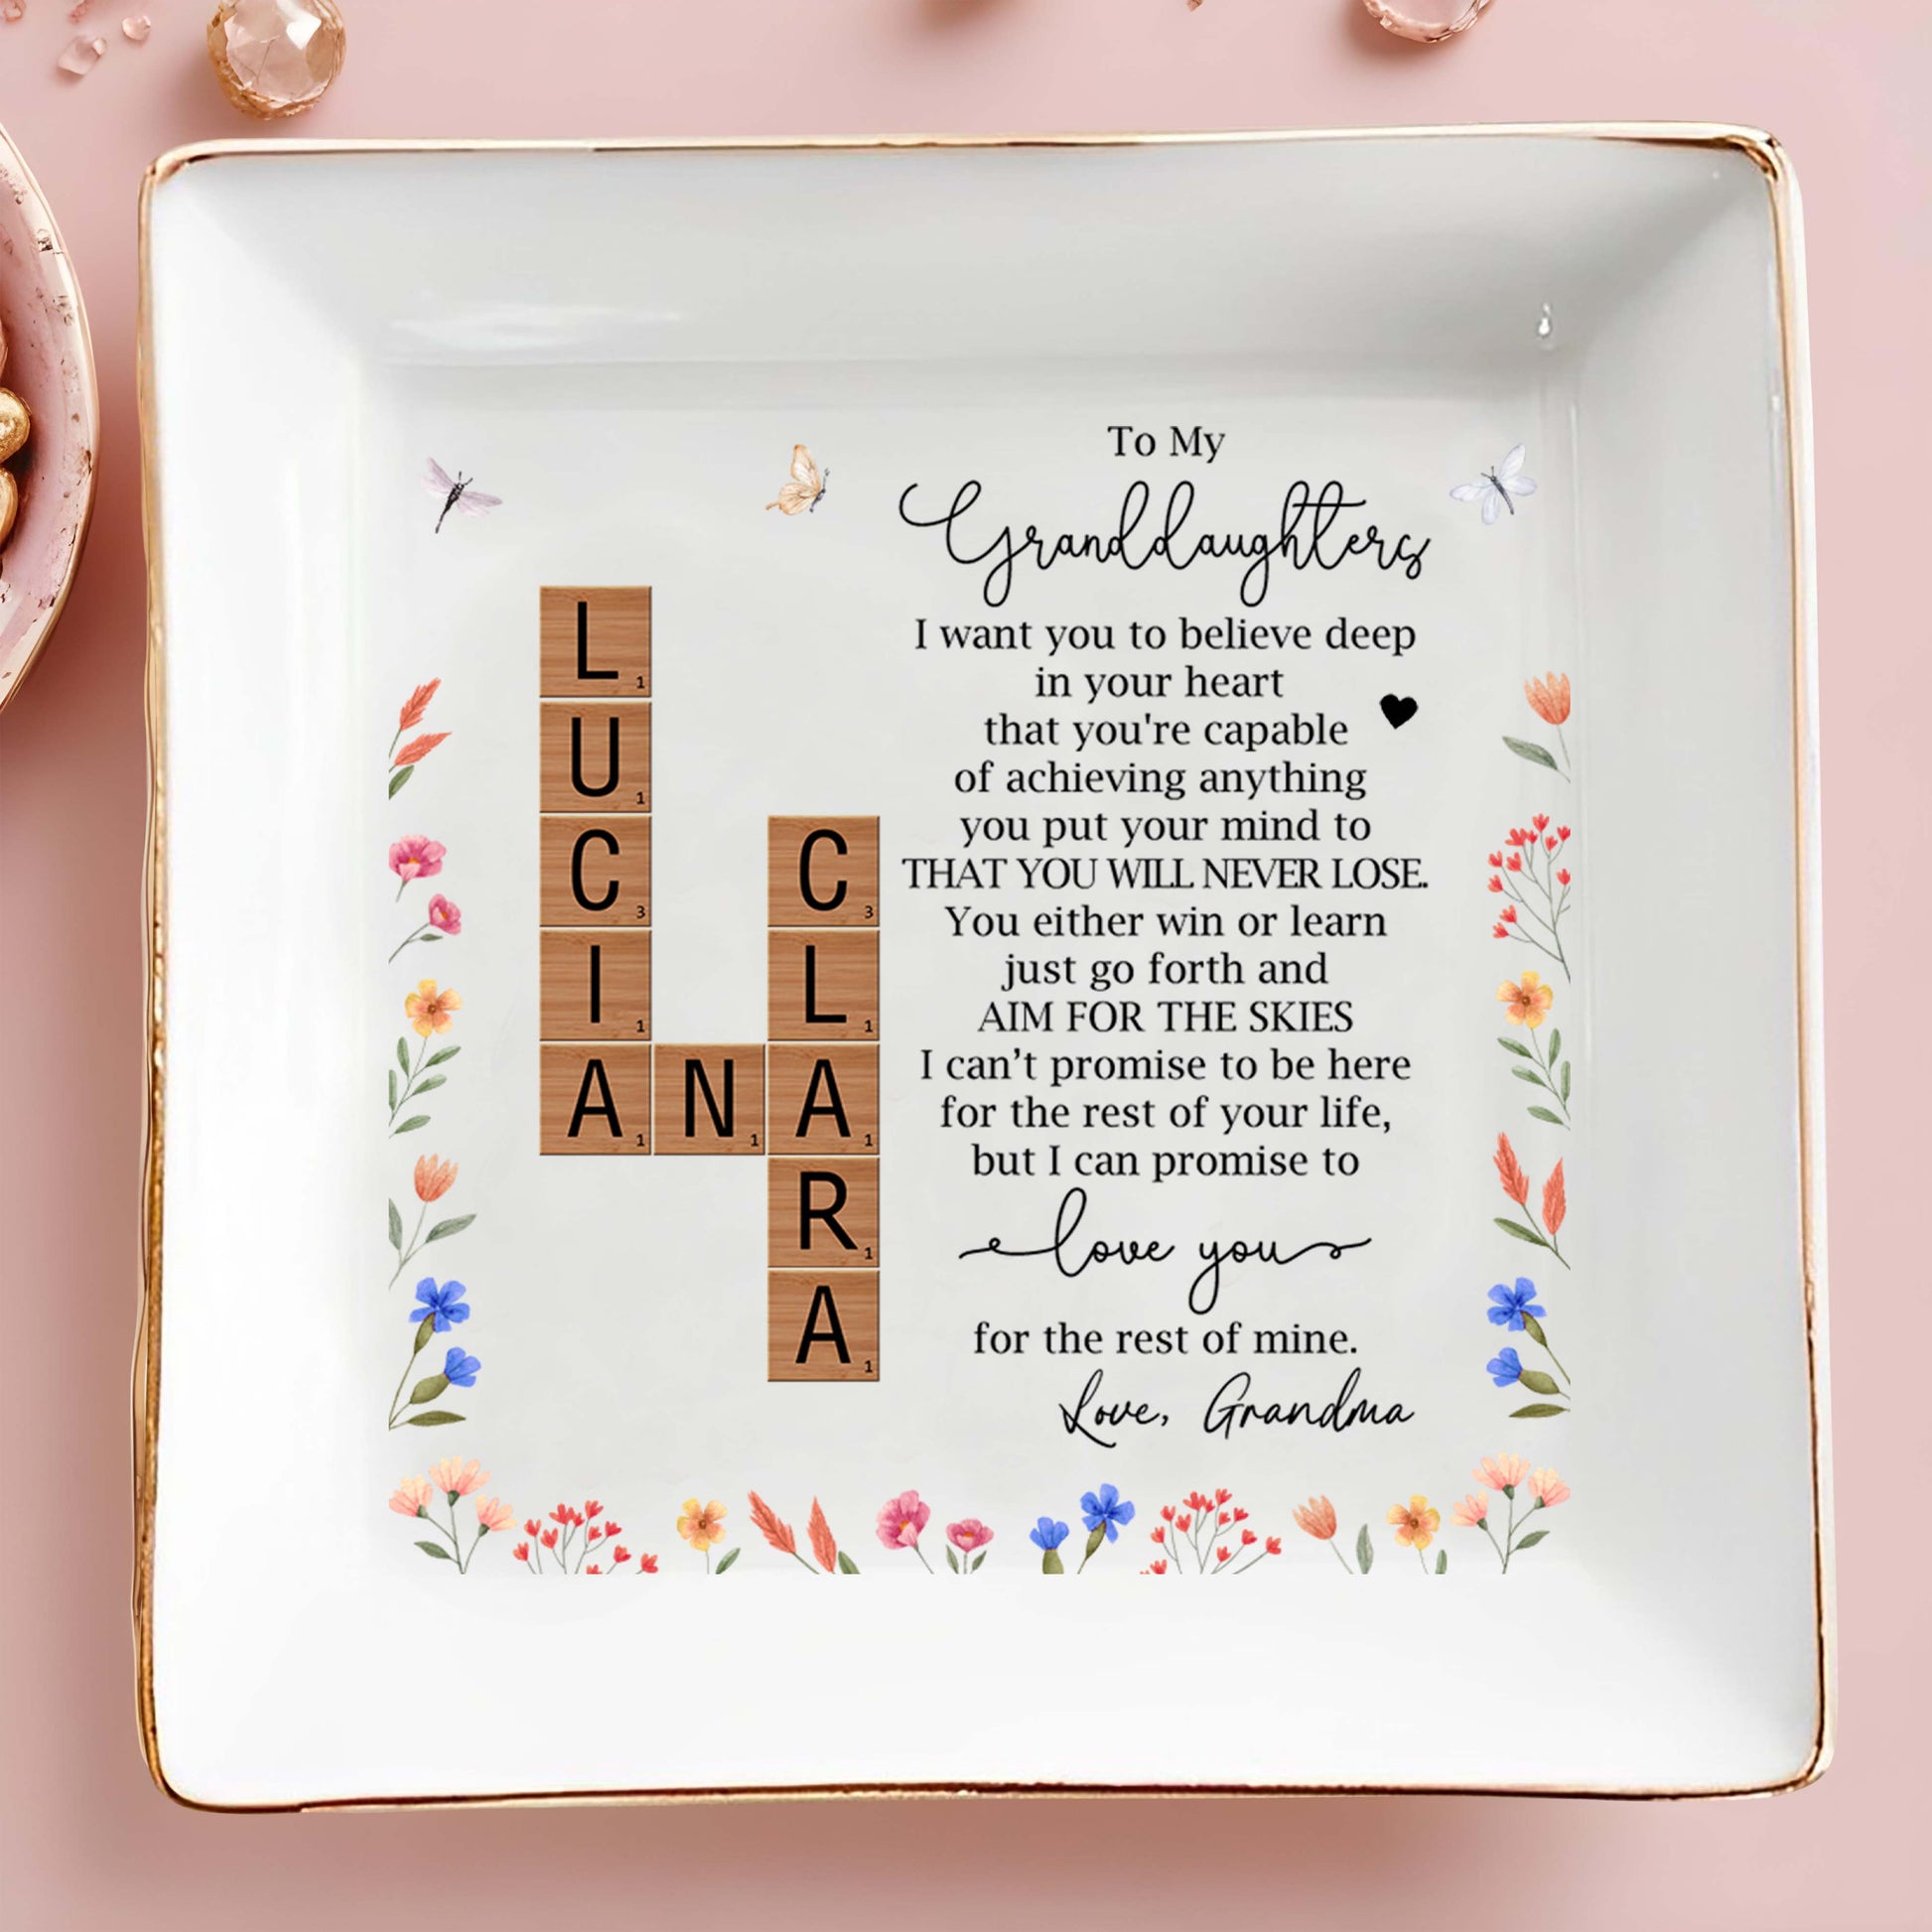 To My
Granddaughters
I want you to believe deep
in your heart
that you're capable
of achieving anything
you put your mind to
THAT YOU WILL NEVER LOSE.
You either win or learn
just go forth and
AIM FOR THE SKIES
I can’t promise to be here
for the rest of your life,
but I can promise to
love you
for the rest of mine.
Love, Grandma
L1
U1
C3 C3
I1 L1
A1 N1 A1
R1
A1